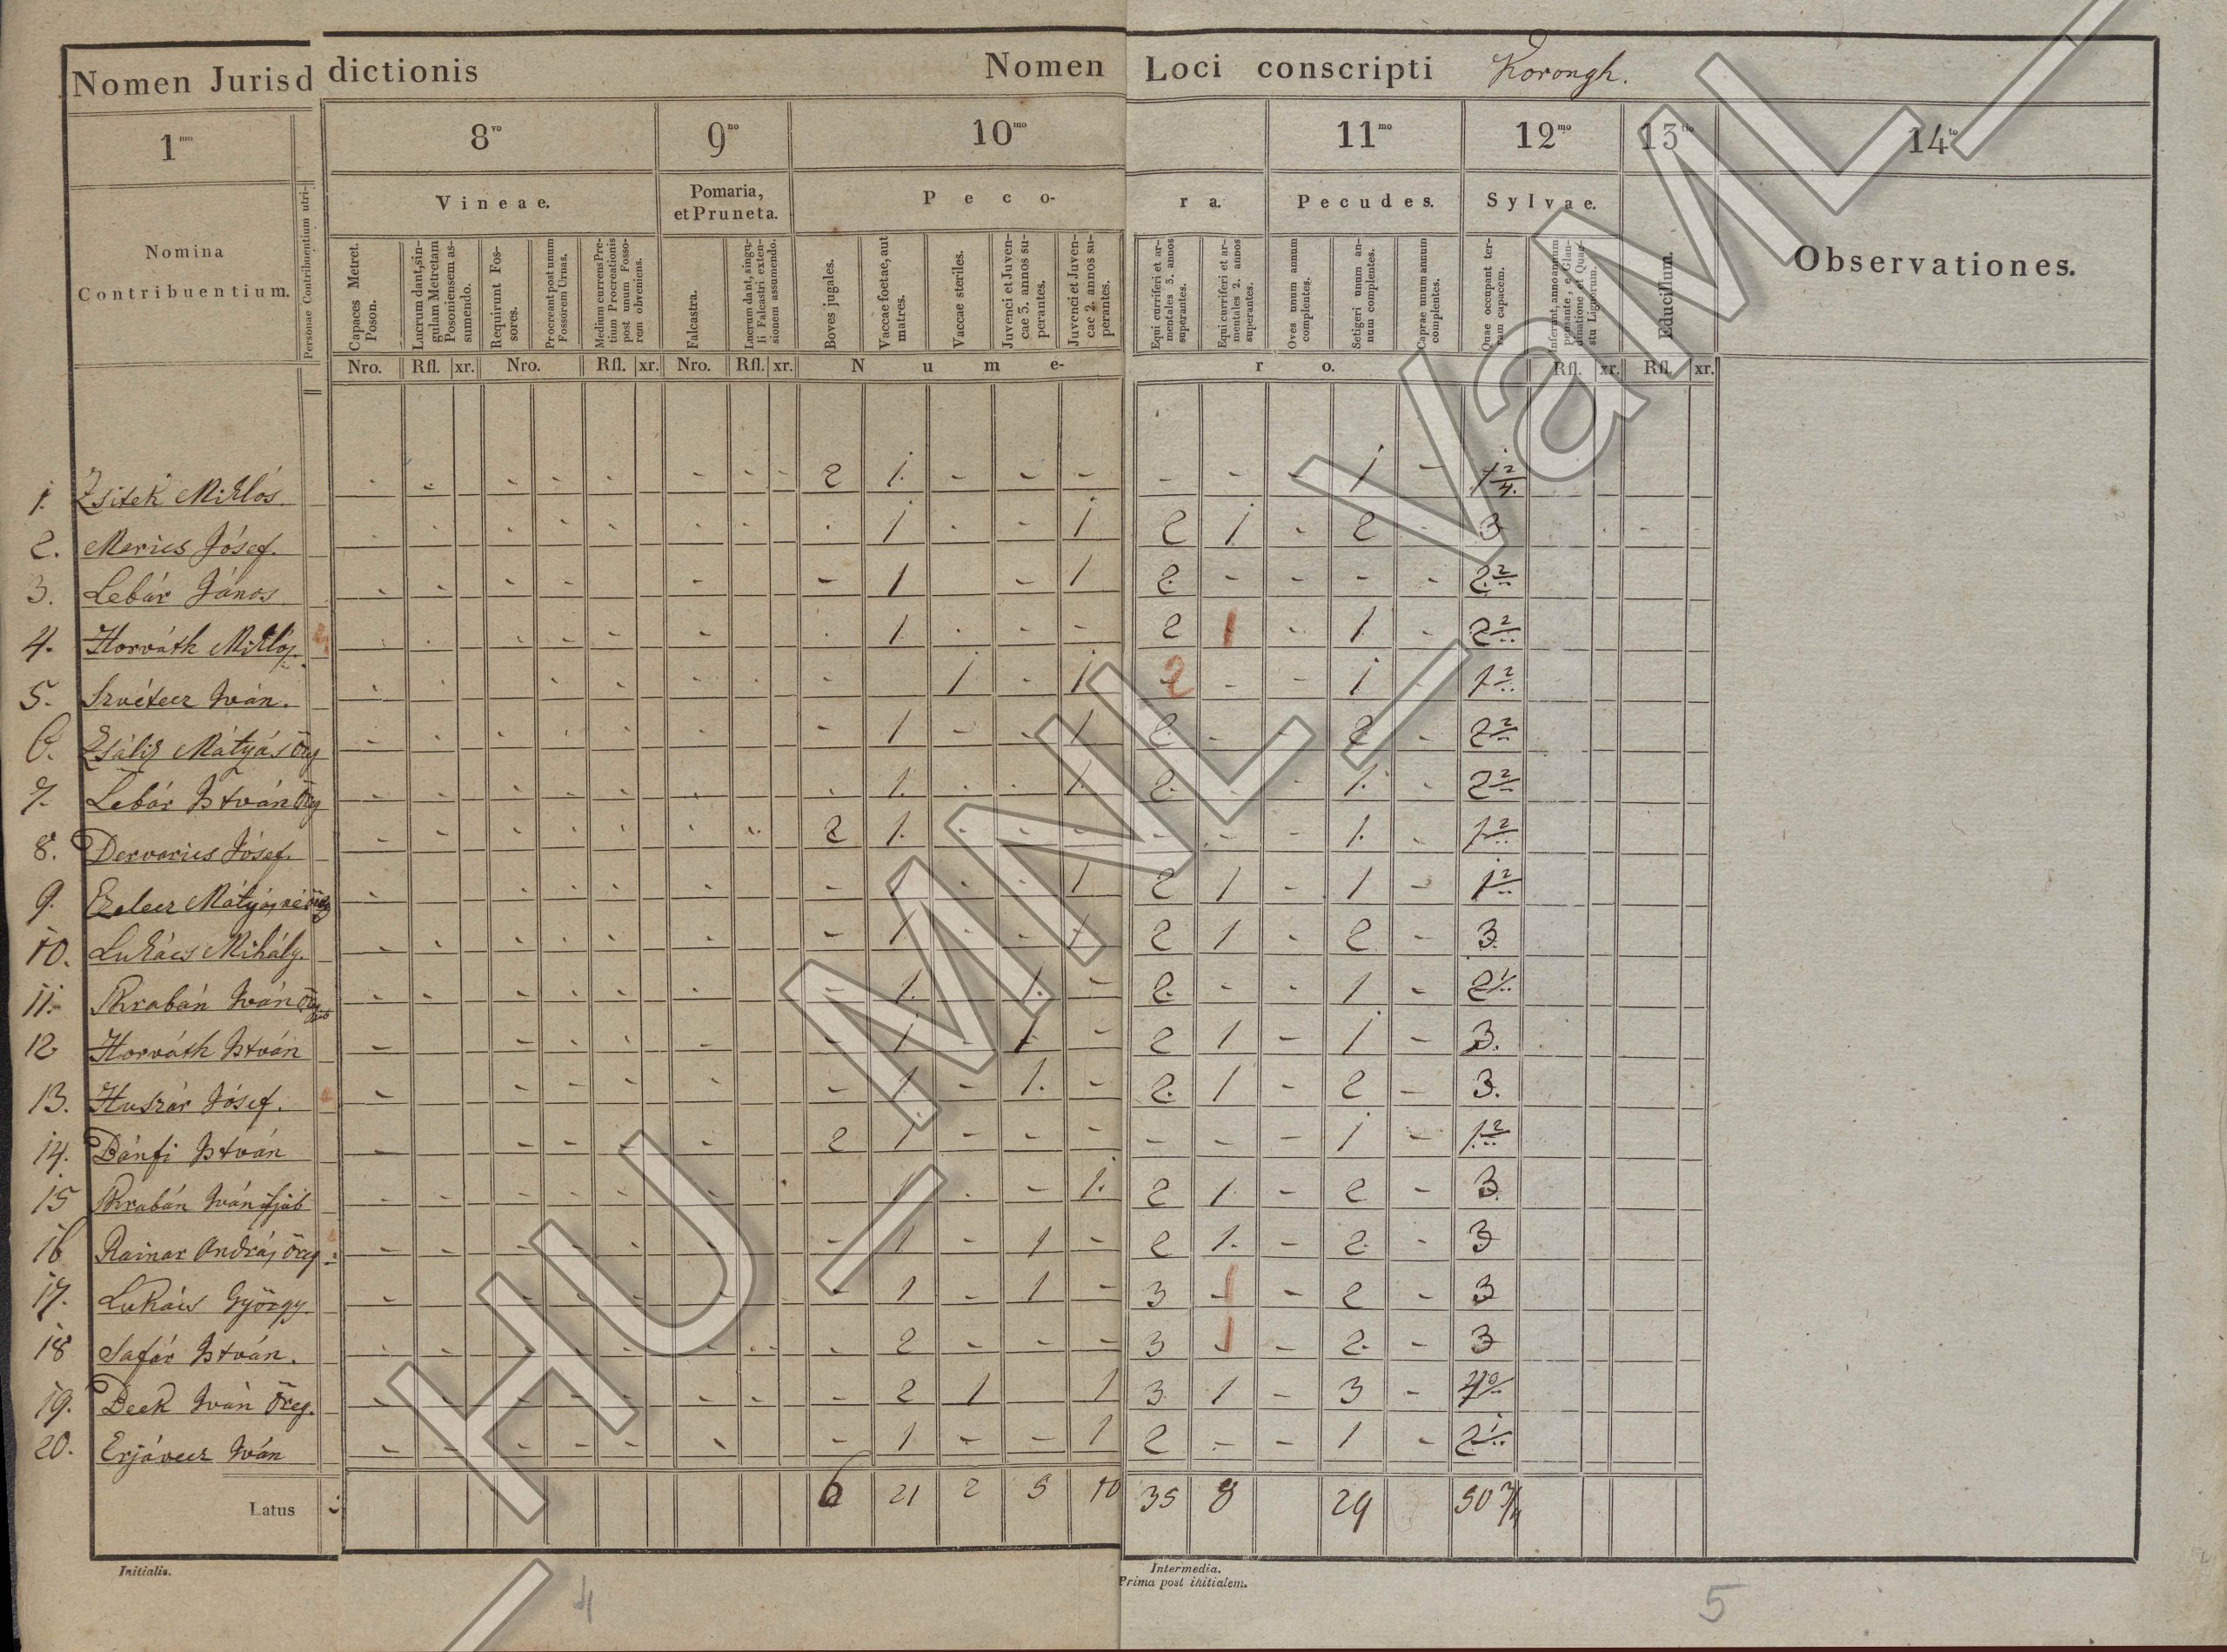 Nomen Jurisd dictionis Nomen Loci conscripti Korongh.
1mo 8vo 9no 10mo 11mo 12mo 13tio 14to
Nomina Contribuentium.
Personae Contribuentium utri-
Vineae.
Pomaria, et Pruneta.
Peco-
ra.
Pecudes.
Sylvae.
Educillum.
Observationes.
Capaces Metret. Poson.
Lucrum dant, singulam Metretam Posoniensem assumendo.
Requirunt Fossores.
Procreant post unum Fossorem Urnas.
Medium currens Pretium Procreationis post unum Fossorem obveniens.
Falcastra.
Lucrum dant, singuli Falcastri extensionem assumendo.
Boves jugales.
Vaccae foetae, aut matres.
Vaccae steriles.
Juvenci et Juvencae 3. annos superantes.
Juvenci et Juvencae 2. annos superantes.
Equi curriferi et armentales 3. annos superantes.
Equi curriferi et armentales 2. annos superantes.
Oves unum annum complentes.
Setigeri unum annum complentes.
Caprae unum annum complentes.
Quae occupant terram capacem.
Nro. Rfl. xr. Nro. Rfl. xr. Nro. Rfl. xr. N u m e- r o. Rfl. xr. Rfl. xr.
1. Zsitek Miklós 2 1. - - - - - - 1 - 1 2/4.
2. Marics Jósef. 1 - - 1 2 1 - 2 - 3
3. Lebár János 1 - 1 2. - - - - 2 2/..
4. Horváth Miklós 1. - - - 2 1 - 1. - 2 2/..
5. Szvétecz Iván. 1 - 1 2 - - 1 - 1 2/..
6. Zsálig Mátyás öreg - 1 - - 1 2 - - 2 - 2 2/..
7. Lebár István öreg - 1. - - 1. 2. - - 1. - 2 2/..
8. Dervarics Jósef. 2 1. - - - - - - 1. - 1 2/..
9. Mátyásné öreg - 1 - - 1 2 1 - 1 - 1 2/..
10. Lukács Mihály. - 1 - - 1 2 1 - 2 - 3.
11. Skrabán Iván - 1. 1. - 2. - - 1 - 2 1/..
12. Horváth István - 1 - 1 - 2 1 - 1 - 3.
13. Huszár Jósef. - 1 - 1. - 2. 1 - 2 - 3.
14. Bánfi István 2 1 - - - - - - 1 - 1 2/..
15 Skrabán Iván ifjab 1 - - 1. 2 1. - 2 - 3.
16 Rainar András öreg - 1 - 1 - 2 1. - 2. - 3
17. Lukács György. - 1 - 1 - 3 1 - 2 - 3
18 Safár István. - 2 - - - 3 1 - 2. - 3
19. Deek Iván öreg. - 2 1 1 3 1 - 3 -
20. Erjávecz Iván - 1 - - 1 2 - - 1 - 2 1/..
Latus 6 21 2 5 10 35 8 29 50 3/4
Initialis.
Intermedia.
Prima post initialem.
4
5
HU_MNL_VaML_